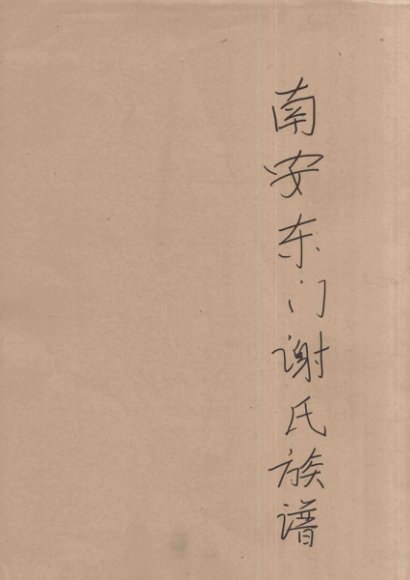 南安东门谢氏族谱